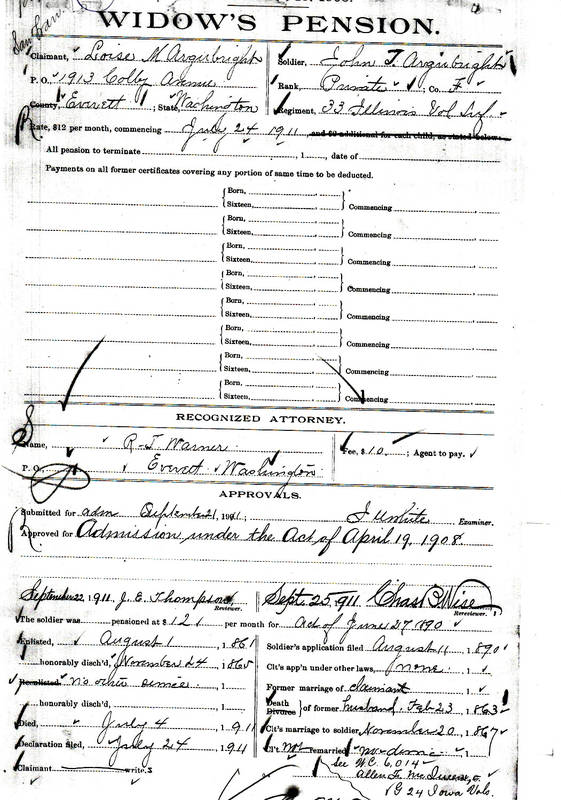 WIDOW'S PENSION.
Claimant, Loise M Argubright
P. O., 1913 Colby Avenue
County, Everett ; State, Washington
Soldier, John T. Argubright
Rank, Private ; Co. F
Regiment, 33 Illinois Vol. Inf.
Rate, $12 per month, commencing July 24 1911 and $2 additional for each child, as stated below.
All pension to terminate , 1 , date of
Payments on all former certificates covering any portion of same time to be deducted.
Born,
Sixteen, Commencing
Born,
Sixteen, Commencing
Born,
Sixteen, Commencing
Born,
Sixteen, Commencing
Born,
Sixteen, Commencing
Born,
Sixteen, Commencing
Born,
Sixteen, Commencing
Born,
Sixteen, Commencing
RECOGNIZED ATTORNEY.
Name, R. T. Warner
P. O., Everett Washington
Fee, $10 ; Agent to pay.
APPROVALS.
Submitted for adm September 21, 1911; Examiner.
Approved for Admission under the Act of April 19, 1908
September 22, 1911 J. E. Thompson, Reviewer.
Sept. 25, 1911 Chas B. Wise Rereviewer.
The soldier was pensioned at $12 per month for Act of June 27 1890
Enlisted, August 1 1861
honorably disch'd, November 24 1865
Reenlisted no other service 1
honorably disch'd, 1
Died, July 4 1911
Declaration filed, July 24 1911
Claimant write.
Soldier's application filed August 11 1890
Clt's app'n under other laws, none 1
Former marriage of claimant 1
Death Divorce of former husband Feb 23 1863
Clt's marriage to soldier, November 20 1867
Cl't not remarried no divorce 1
See W.C. 6,014
G 24 Iowa Vols.